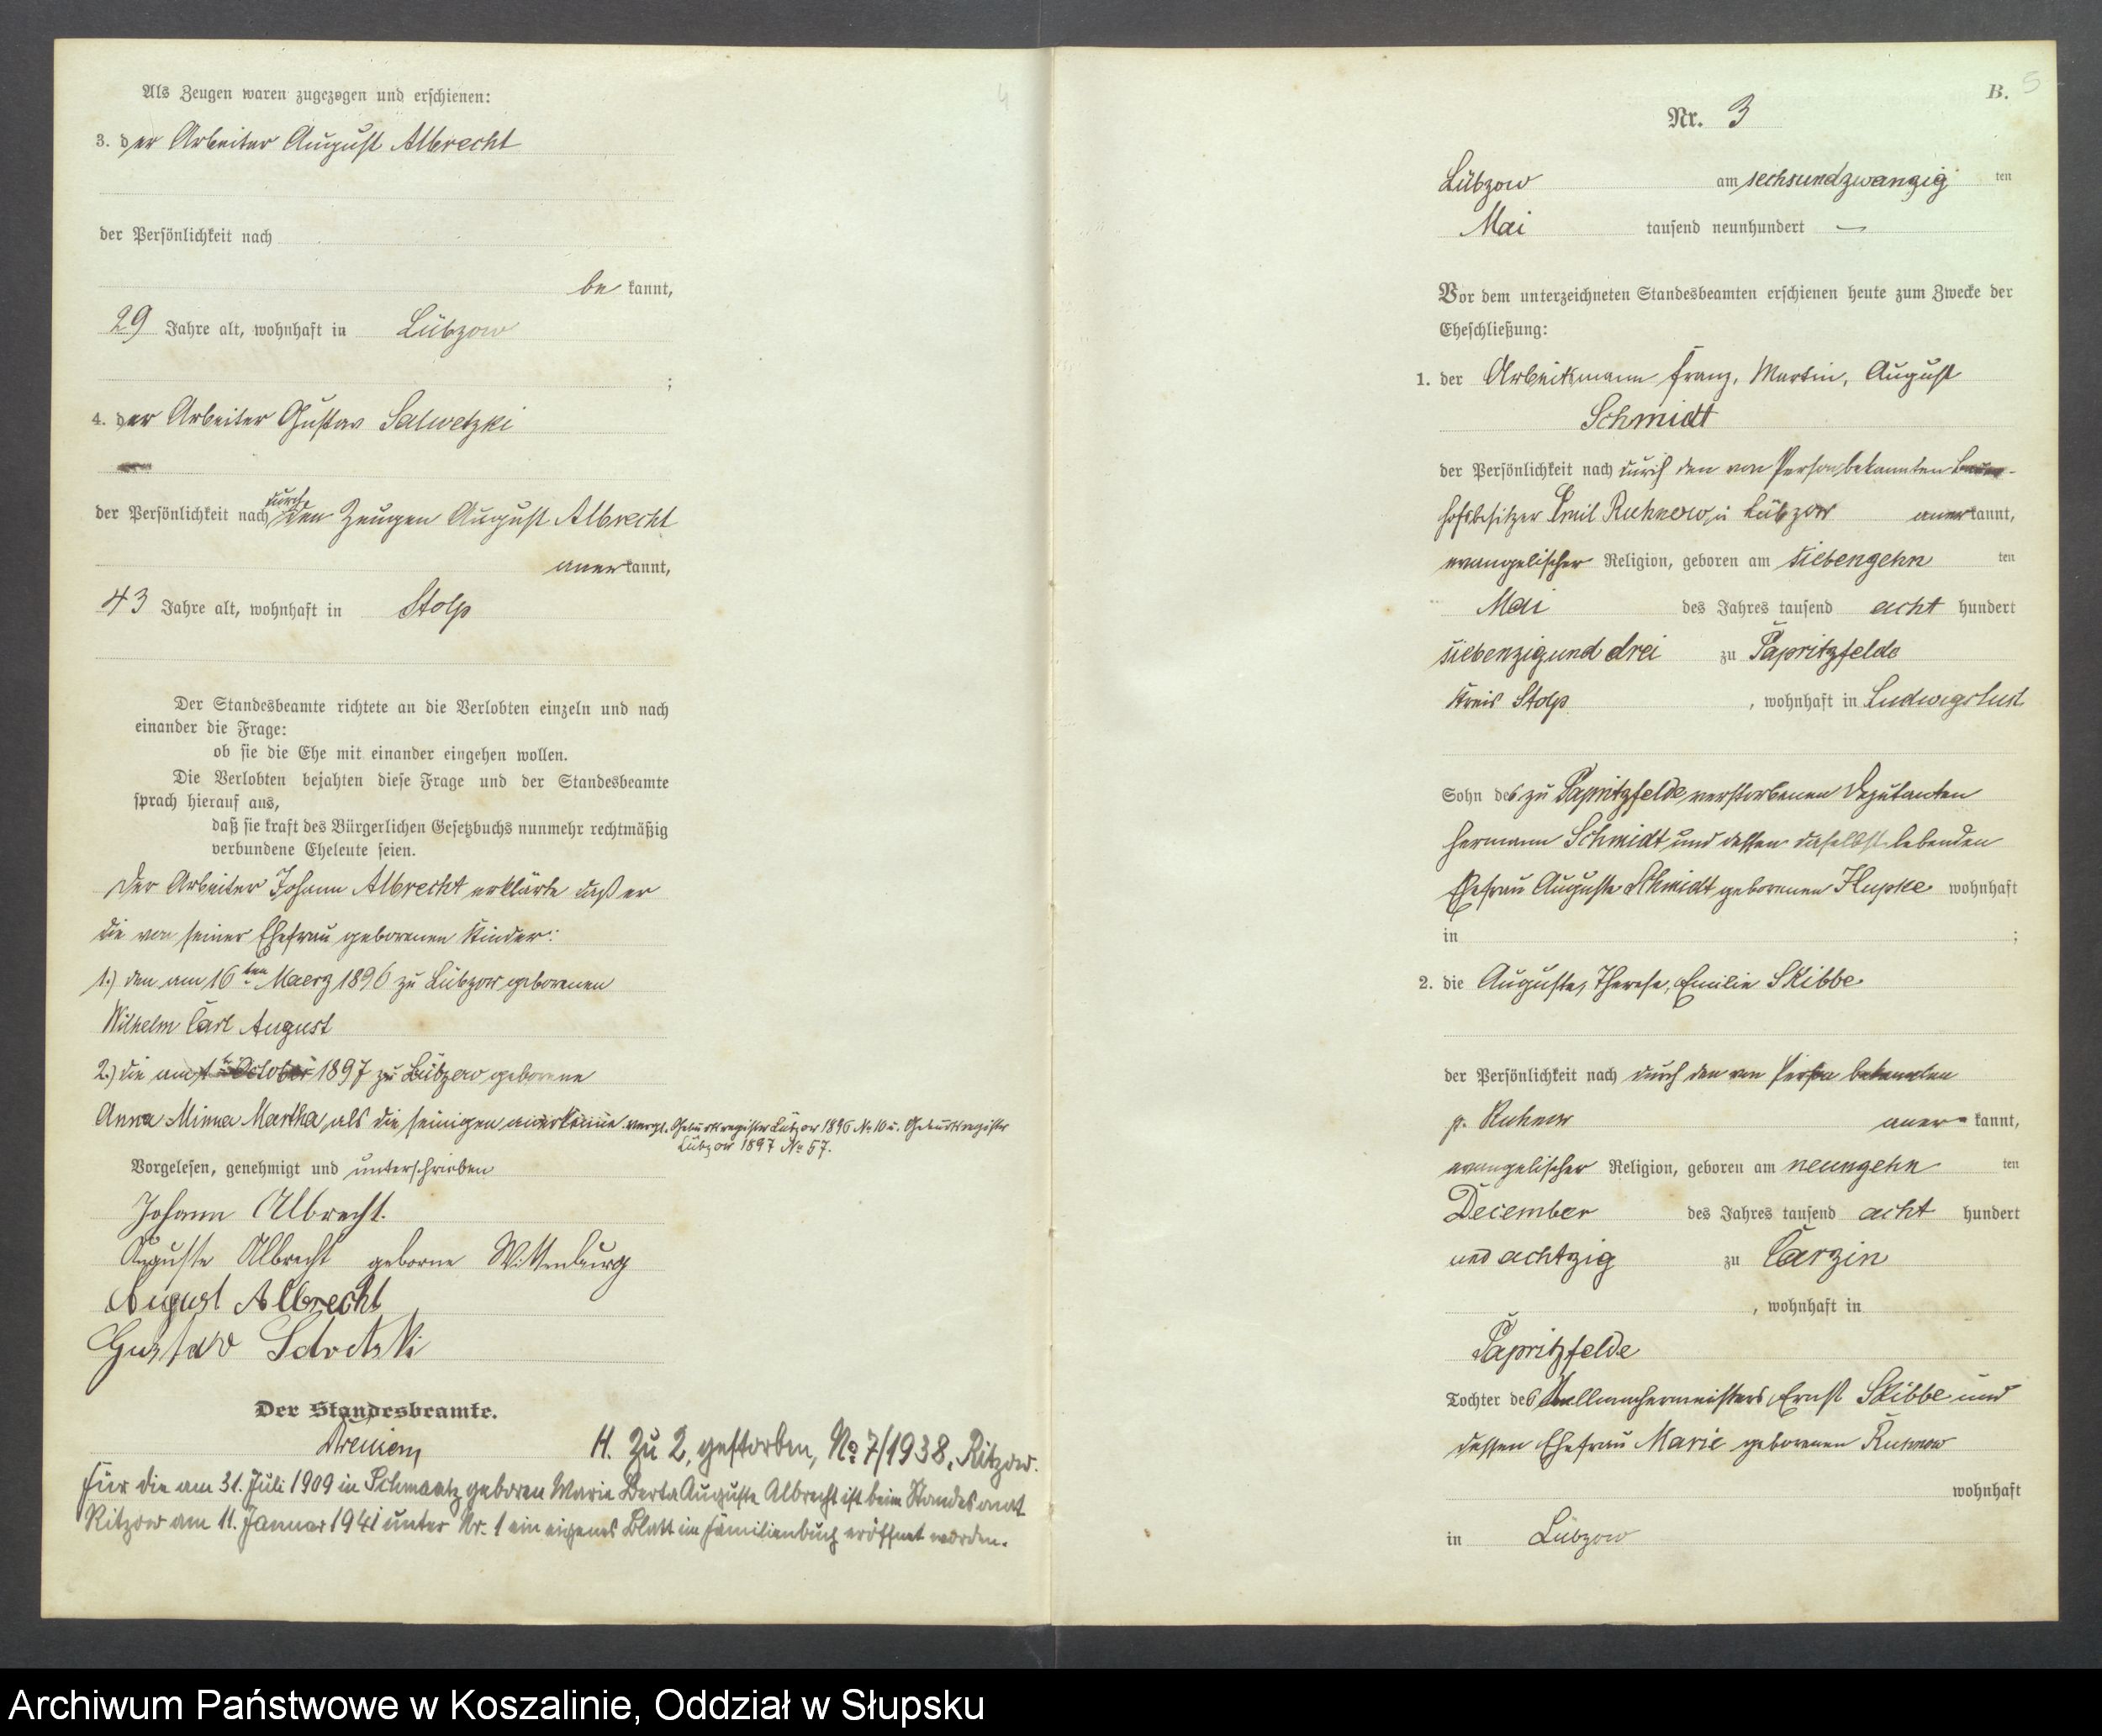 Als Zeugen waren zugezogen und erschienen:
3. der Arbeiter August Albrecht
der Persönlichkeit nach
be kannt,
29 Jahre alt, wohnhaft in Lübzow
;
4. der Arbeiter Gustav Salwetzki
der Persönlichkeit nach durch den Zeugen August Albrecht
aner kannt,
43 Jahre alt, wohnhaft in Stolp
Der Standesbeamte richtete an die Verlobten einzeln und nach
einander die Frage:
ob sie die Ehe mit einander eingehen wollen.
Die Verlobten bejahten diese Frage und der Standesbeamte
sprach hierauf aus,
daß sie kraft des Bürgerlichen Gesetzbuchs nunmehr rechtmäßig
verbundene Eheleute seien.
Der Arbeiter Johann Albrecht erklärte daß er
die von seiner Ehefrau geborenen Kinder:
1.) den am 16ten Maerz 1896 zu Lübzow geborenen
Wilhelm Carl August
2.) die am 1 October 1897 zu Lübzow geborene
Anna Minna Martha, als die seinigen anerkenne. vergl. Geburtsregister Lübzow 1896 No 10 u. Geburtsregister
Lübzow 1897 No 57.
Vorgelesen, genehmigt und unterschrieben
Johann Albrecht.
Auguste Albrecht geborne Wittenburg
August Albrecht
Gustav
Der Standesbeamte.
H. Zu 2, gestorben, No 7/1938, Ritzow.
Für die am 31. Juli 1909 in Schmaatz geboren Marie Berta Auguste Albrecht ist beim Standesamt
Ritzow am 11. Januar 1941 unter Nr. 1 ein eigenes Blatt im Familienbuch eröffnet worden.
4
B.
5
Nr. 3
Lübzow am sechsundzwanzig ten
Mai tausend neunhundert —
Vor dem unterzeichneten Standesbeamten erschienen heute zum Zwecke der
Eheschließung:
1. der Arbeitsmann Franz, Martin, August
Schmidt
der Persönlichkeit nach durch den von Person bekannten Bauer-
hofsbesitzer Emil Ruhnow in Lübzow aner kannt,
evangelischer Religion, geboren am siebenzehn ten
Mai des Jahres tausend acht hundert
siebenzig und drei zu Papritzfelde
Kreis Stolp, wohnhaft in Ludwigslust
Sohn des zu Papritzfelde verstorbenen Deputanten
Hermann Schmidt und dessen daselbst lebenden
Ehefrau Auguste Schmidt geborenen Hupke wohnhaft
in ;
2. die Auguste, Therese, Emilie Skibbe
der Persönlichkeit nach durch den von Person bekannten
p. Ruhnow aner kannt,
evangelischer Religion, geboren am neunzehn ten
December des Jahres tausend acht hundert
und achtzig zu Carzin
, wohnhaft in
Papritzfelde
Tochter des Stellmachermeisters Ernst Skibbe und
dessen Ehefrau Marie geborenen Ruhnow
wohnhaft
in Lübzow
Archiwum Państwowe w Koszalinie, Oddział w Słupsku